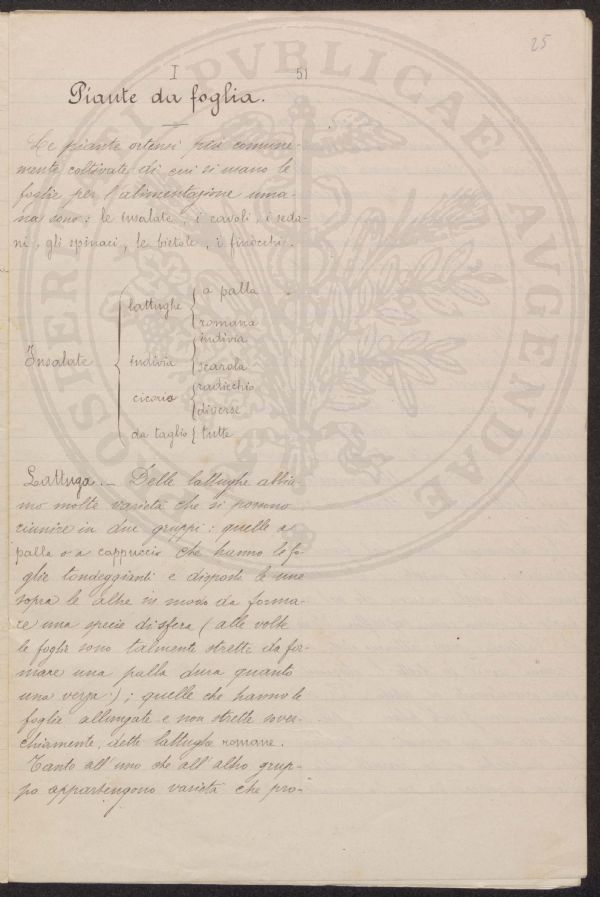 25
I 51
Piante da foglia.
Le piante ortensi più comune-
mente coltivate di cui si usano le
foglie per l'alimentazione uma-
na sono: le insalate, i cavoli, i seda-
ni, gli spinaci, le bietole, i finocchi.
lattughe { a palla
romana
Insalate { indivia { indivia
scarola
cicoria { radicchio
diverse
da taglio { tutte
Lattuga. - Delle lattughe abbia-
mo molte varietà che si possono
riunire in due gruppi: quelle a
palla o a cappuccio che hanno le fo-
glie tondeggianti e disposte le une
sopra le altre in modo da forma-
re una specie di sfera (alle volte
le foglie sono talmente strette da for-
mare una palla dura quanto
una verza); quelle che hanno le
foglie allungate e non strette sover-
chiamente, dette lattughe romane.
Tanto all'uno che all'altro grup-
po appartengono varietà che pro-
PVBLICAE AVGENDAE